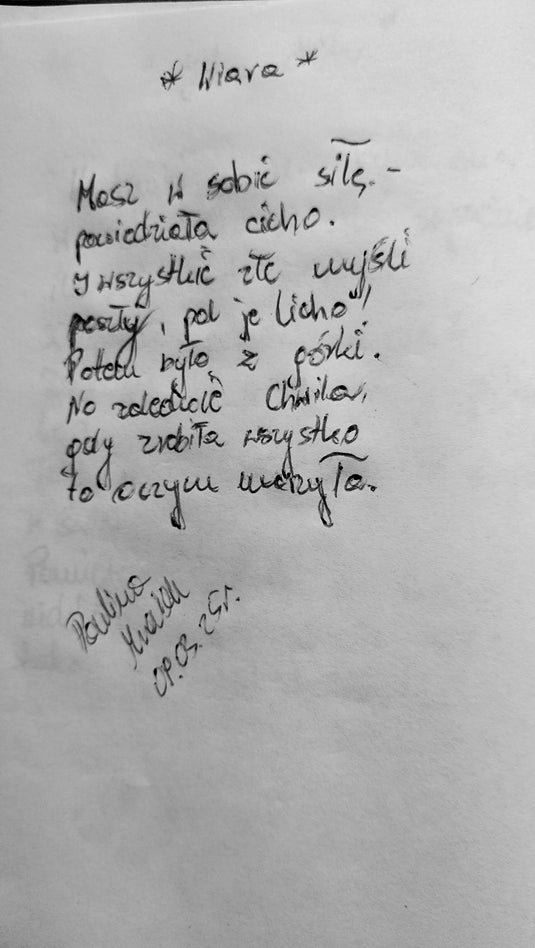 * Wiara *
Masz w sobie siłę. -
powiedziała cicho.
I wszystkie złe myśli
poszły, pal je licho!
Potem było z górki.
No zaledwie chwila,
gdy zrobiła wszystko
to o czym marzyła.
Paulina
09.03.25r.